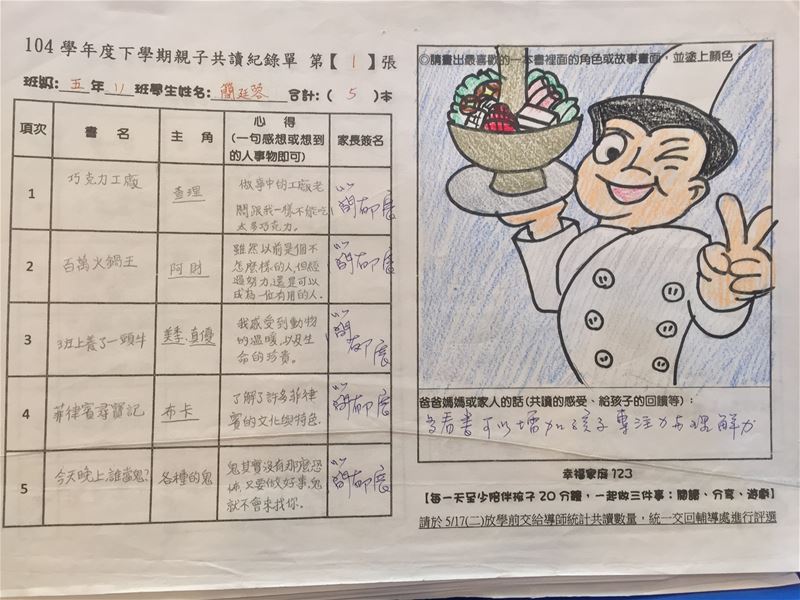 104 學年度下學期親子共讀紀錄單 第【 1 】張
班級：五年11班學生姓名：簡廷蓉 合計：( 5 )本
項次
書 名
主 角
心 得
(一句感想或想到
的人事物即可)
家長簽名
1
巧克力工廠
查理
做夢中的工廠老
闆跟我一樣不能吃
太多巧克力。
2
百萬火鍋王
阿財
雖然以前是個不
怎麼樣的人,但經
過努力,還是可以
成為一位有用的人.
3
3班上養了一頭牛
美季.直優
我感受到動物
的溫暖,以及生
命的珍貴。
4
菲律賓尋寶記
布卡
了解了許多菲律
賓的文化與特色.
5
今天晚上誰當鬼?
各種的鬼
鬼其實沒有那麼恐
怖,只要做好事,鬼
就不會來找你。
◎請畫出最喜歡的一本書裡面的角色或故事畫面，並塗上顏色：
爸爸媽媽或家人的話(共讀的感受、給孩子的回饋等)：
看書可以增加孩子專注力與理解力
幸福家庭 123
【每一天至少陪伴孩子 20 分鐘，一起做三件事：閱讀、分享、遊戲】
請於 5/17(二)放學前交給導師統計共讀數量，統一交回輔導處進行評選